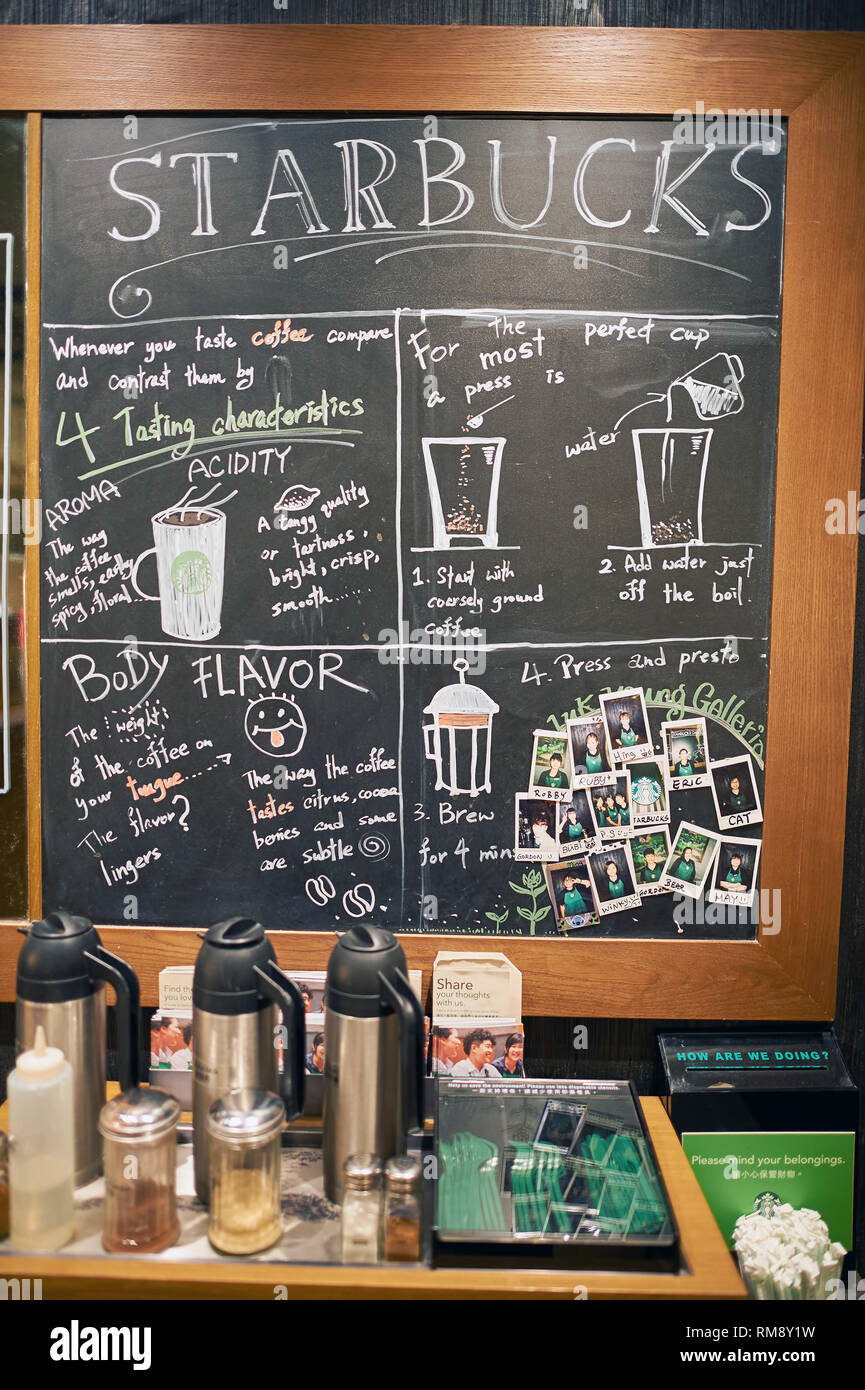 STARBUCKS
Whenever you taste coffee compare
and contrast them by
4 Tasting characteristics
AROMA
The way
the coffee
smells, earthy
spicy, floral...
ACIDITY
A tangy quality
or tartness,
bright, crisp,
smooth......
For the most perfect cup
a press is
1. Start with
coarsely ground
coffee
water
2. Add water just
off the boil.
BODY
The weight
of the coffee on
your tongue
The flavor?
lingers
FLAVOR
The way the coffee
tastes citrus, cocoa
berries and some
are subtle
3. Brew
for 4 mins
4. Press and presto
ROBBY
RUBY
Hing
ERIC
CAT
GORDON
BUBI
P.S
STARBUCKS
WINKY
Gordon
BEAR
MAY
Find the
you love
Share
your thoughts
with us.
HOW ARE WE DOING?
Please mind your belongings.
請小心保管財物。
Help us save the environment. Please use less disposable utensils
alamy
Image ID: RM8Y1W
www.alamy.com